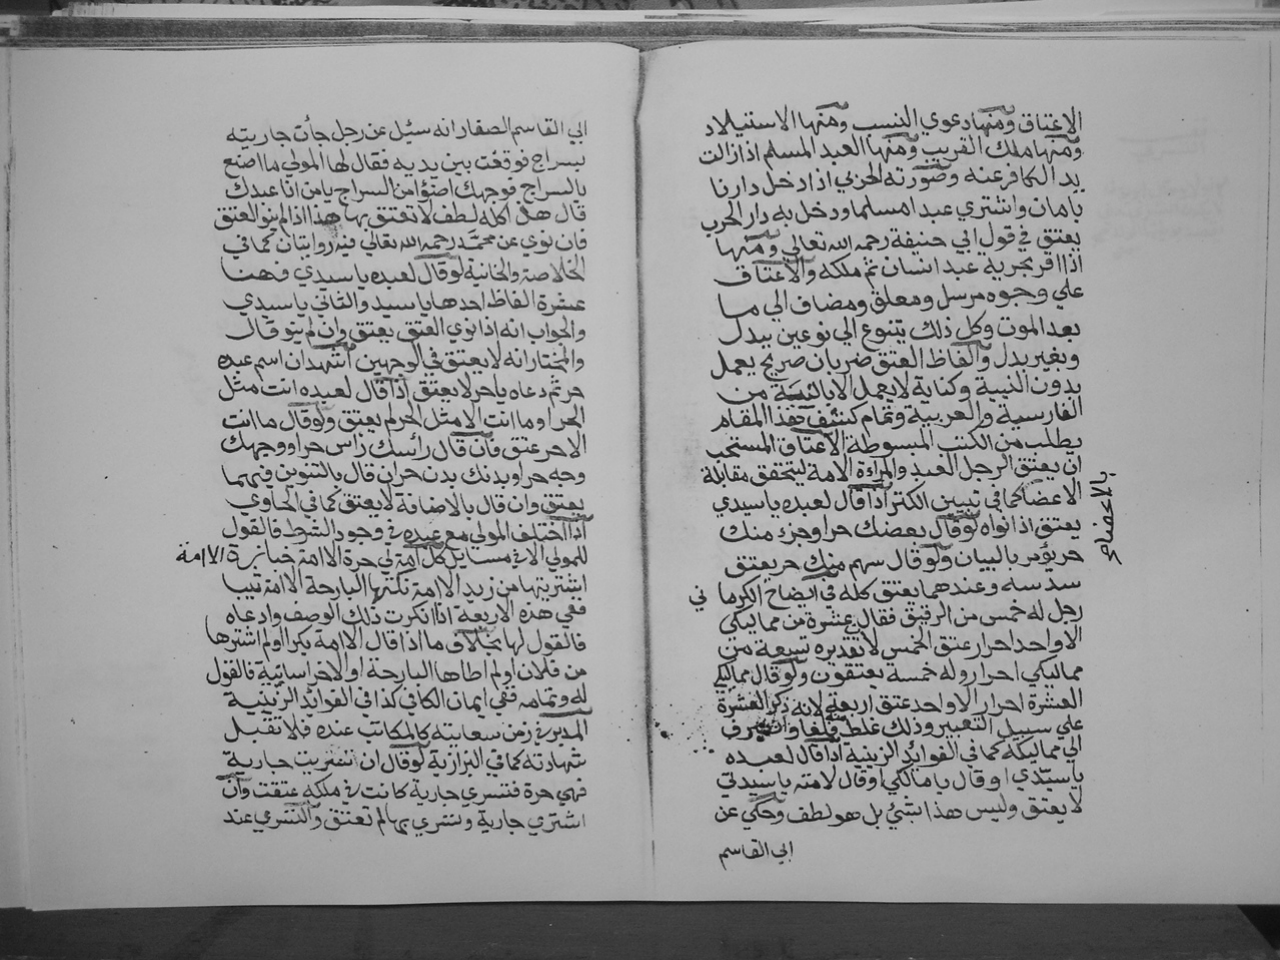 الاعتاق ومنها دعوي النسب ومنها الاستيلاد
ومنها ملك القريب ومنها العبد المسلم اذا زالت
يد الكافر عنه وصورته الحربي اذا دخل دارنا
بامان واشتري عبدا مسلما ودخل به دار الحرب
يعتق في قول ابي حنيفة رحمه الله تعالي ومنها
اذا اقر بحرية عبد انسان ثم ملكه والاعتاق
علي وجوه مرسل ومعلق ومضاف الي ما
بعد الموت وكل ذلك يتنوع الي نوعين ببدل
وبغير بدل والفاظ العتق ضربان صريح يعمل
بدون النيية وكناية لا يعمل الا بالنية من
الفارسية والعربية وتمام كشف هذا المقام
يطلب من الكتب المبسوطة الاعتاق المستحب
ان يعتق الرجل العبد والمراءة الامة ليتحقق مقابلة
الاعضا كما في تبيين الكنز اذا قال لعبده يا سيدي
بالاعضاء
يعتق اذا نواه لو قال بعضك حر او جزء منك
حر يؤمر بالبيان ولو قال سهم منك حر يعتق
سدسه وعندهما يعتق كله في ايضاح الكرما ني
رجل له خمس من الرقيق فقال عشرة من مماليكي
الا واحدا حرار عتق الخمس لان تقديره تسعة من
مماليكي احرار وله خمسة يعتقون ولو قال مماليكي
العشرة احرار الا واحد عتق اربعة لانه ذكر العشرة
علي سبيل التعبير وذلك غلط فلغا وانصرف
الي مماليكه كما في الفوائد الزينية اذا قال لعبده
يا سيدي او قال يا مالكي او قال لامته يا سيدتي
لا يعتق وليس هذا بشئ بل هو لطف وحكي عن
ابي القاسم
ابي القاسم الصفار انه سئيل عن رجل جأت جاريته
بسراج فوقفت بين يديه فقال لها المولي ما اصنع
بالسراج فوجهك اضؤ من السراج يا من انا عبدك
قال هذه كله لطف لا تعتق بها هذا اذا لم ينو العتق
فان نوي عن محمد رحمه الله تعالي فيه روايتان كما في
الخلاصة والخانية لو قال لعبده يا سيدي فهنا
عشرة الفاظ احدها يا سيد والثاني يا سيدي
والجواب انه اذا نوي العتق يعتق وان لم ينو قال
والمختار انه لا يعتق في الوجهين اشهد ان اسم عبده
حر ثم دعاه يا حر لا يعتق اذا قال لعبده انت مثل
الحر او ما انت الا مثل الحر لم يعتق ولو قال ما انت
الا حر عتق فان قال رائسك راس حر او وجهك
وجه حر او بدنك بدن حر ان قال بالتنوين فيهما
يعتق وان قال بالاضافة لا يعتق كما في الحاوي
اذا اختلف المولي مع عبده في وجود الشرط فالقول
للمولي الا في مسايل كل امة لي حرة الا امة خبازة الا امة
اشتريتها من زيد الا امة نكحها البارحة الا امة ثيبا
ففي هذه الاربعة اذا انكرت ذلك الوصف وادعاه
فالقول لها بخلاف ما اذا قال الا امة بكرا او لم اشترها
من فلان او لم اطاها البارحة او الا خراسانية فالقول
له وتمامه ففي ايمان الكافي كذا في الفوائد الزينية
المدبر في زمن سعايته كالمكاتب عنده فلا تقبل
شهادته كما في البزازية لو قال ان تسريت جارية
فهي حرة فتسري جارية كانت في ملكه عتقت وان
اشتري جارية وتسري بها لم تعتق والتسري عند